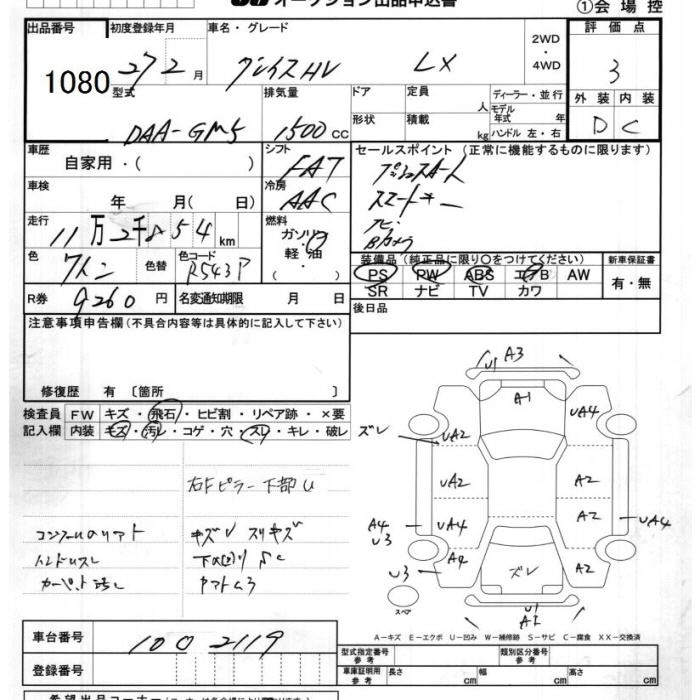 オークション出品申込書
①会場控
出品番号 初度登録年月 車名・グレード 評価点
1080 27 2 月 グレイスHV LX 2WD・4WD 3
型式 排気量 ドア 定員 人 ディーラー・並行 外装 内装
DAA-GM5 1500 CC 形状 積載 kg モデル年式 年 ハンドル 左・右 D C
車歴 自家用・( ) シフト FAT セールスポイント (正常に機能するものに限ります)
車検 年 月( 日) 冷房 AAC プッシュスタート
スマートキー
走行 11万2千854km 燃料 ガソリン・軽油 ナビ
Bカメラ
色 色替 色コード R543P 装備品 (純正品に限り○をつけてください) 新車保証書
PS PW ABS エアB AW 有・無
SR ナビ TV カワ
R券 9260 円 名変通知期限 月 日 後日品
注意事項申告欄(不具合内容等は具体的に記入して下さい)
修復歴 有 〔箇所 〕
検査員 FW キズ・飛石・ヒビ割・リペア跡・×要
記入欄 内装 キズ・汚レ・コゲ・穴・スリ・キレ・破レ
右Fピラー下部U
キズV スリキズ
U1 A3
A1
UA4
ズレ UA2
UA2 A2
A4 U3 UA4 A2 UA4
U3 A4 A2
ズレ
スペア U1 A1
A－キズ E－エクボ U－凹み W－補修跡 S－サビ C－腐食 XX－交換済
車台番号 1002119
登録番号
型式指定番号 参考 類別区分番号 参考
車庫証明用 参考 長さ cm 幅 cm 高さ cm